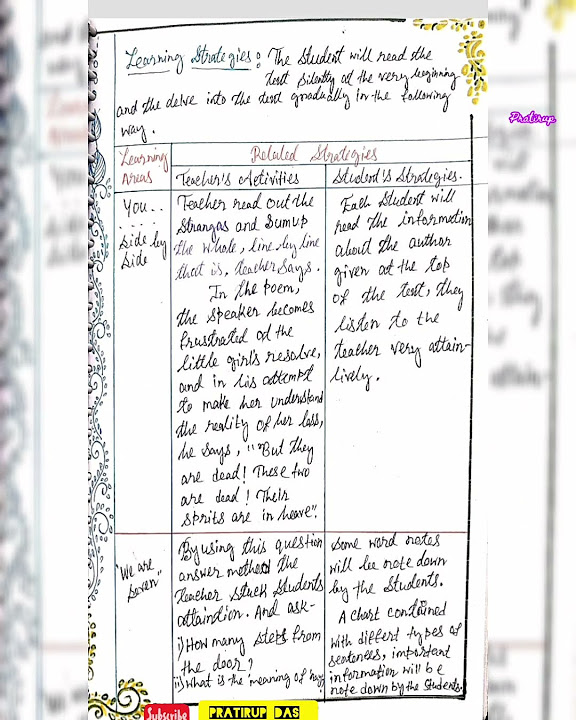 Learning Strategies : The Student will read the
text silently at the very beginning
and the delve into the text gradually in the following
way.
Learning
Areas
Related Strategies
Teacher's Activities
Student's Strategies.
You . .
. . . .
side by
side
Teacher read out the
Strangas and Sumup
the whole, line by line
that is, teacher says.
In the poem,
the speaker becomes
frustrated at the
little girl's resolve,
and in his attempt
to make her understand
the reality of her loss,
he says, "But they
are dead! These two
are dead! Their
sprits are in heave".
Each Student will
read the information
about the author
given at the top
of the text, they
listen to the
teacher very attain-
lively.
"We are
seven"
By using this question
answer method the
teacher stuck Students
attaindion. And ask-
i) How many steps from
the door?
ii) What is the meaning of
Some word notes
will be note down
by the Students.
A chart contained
with differt types of
sentences, important
information will be
note down by the Students.
Pratirup
Subscribe
PRATIRUP DAS